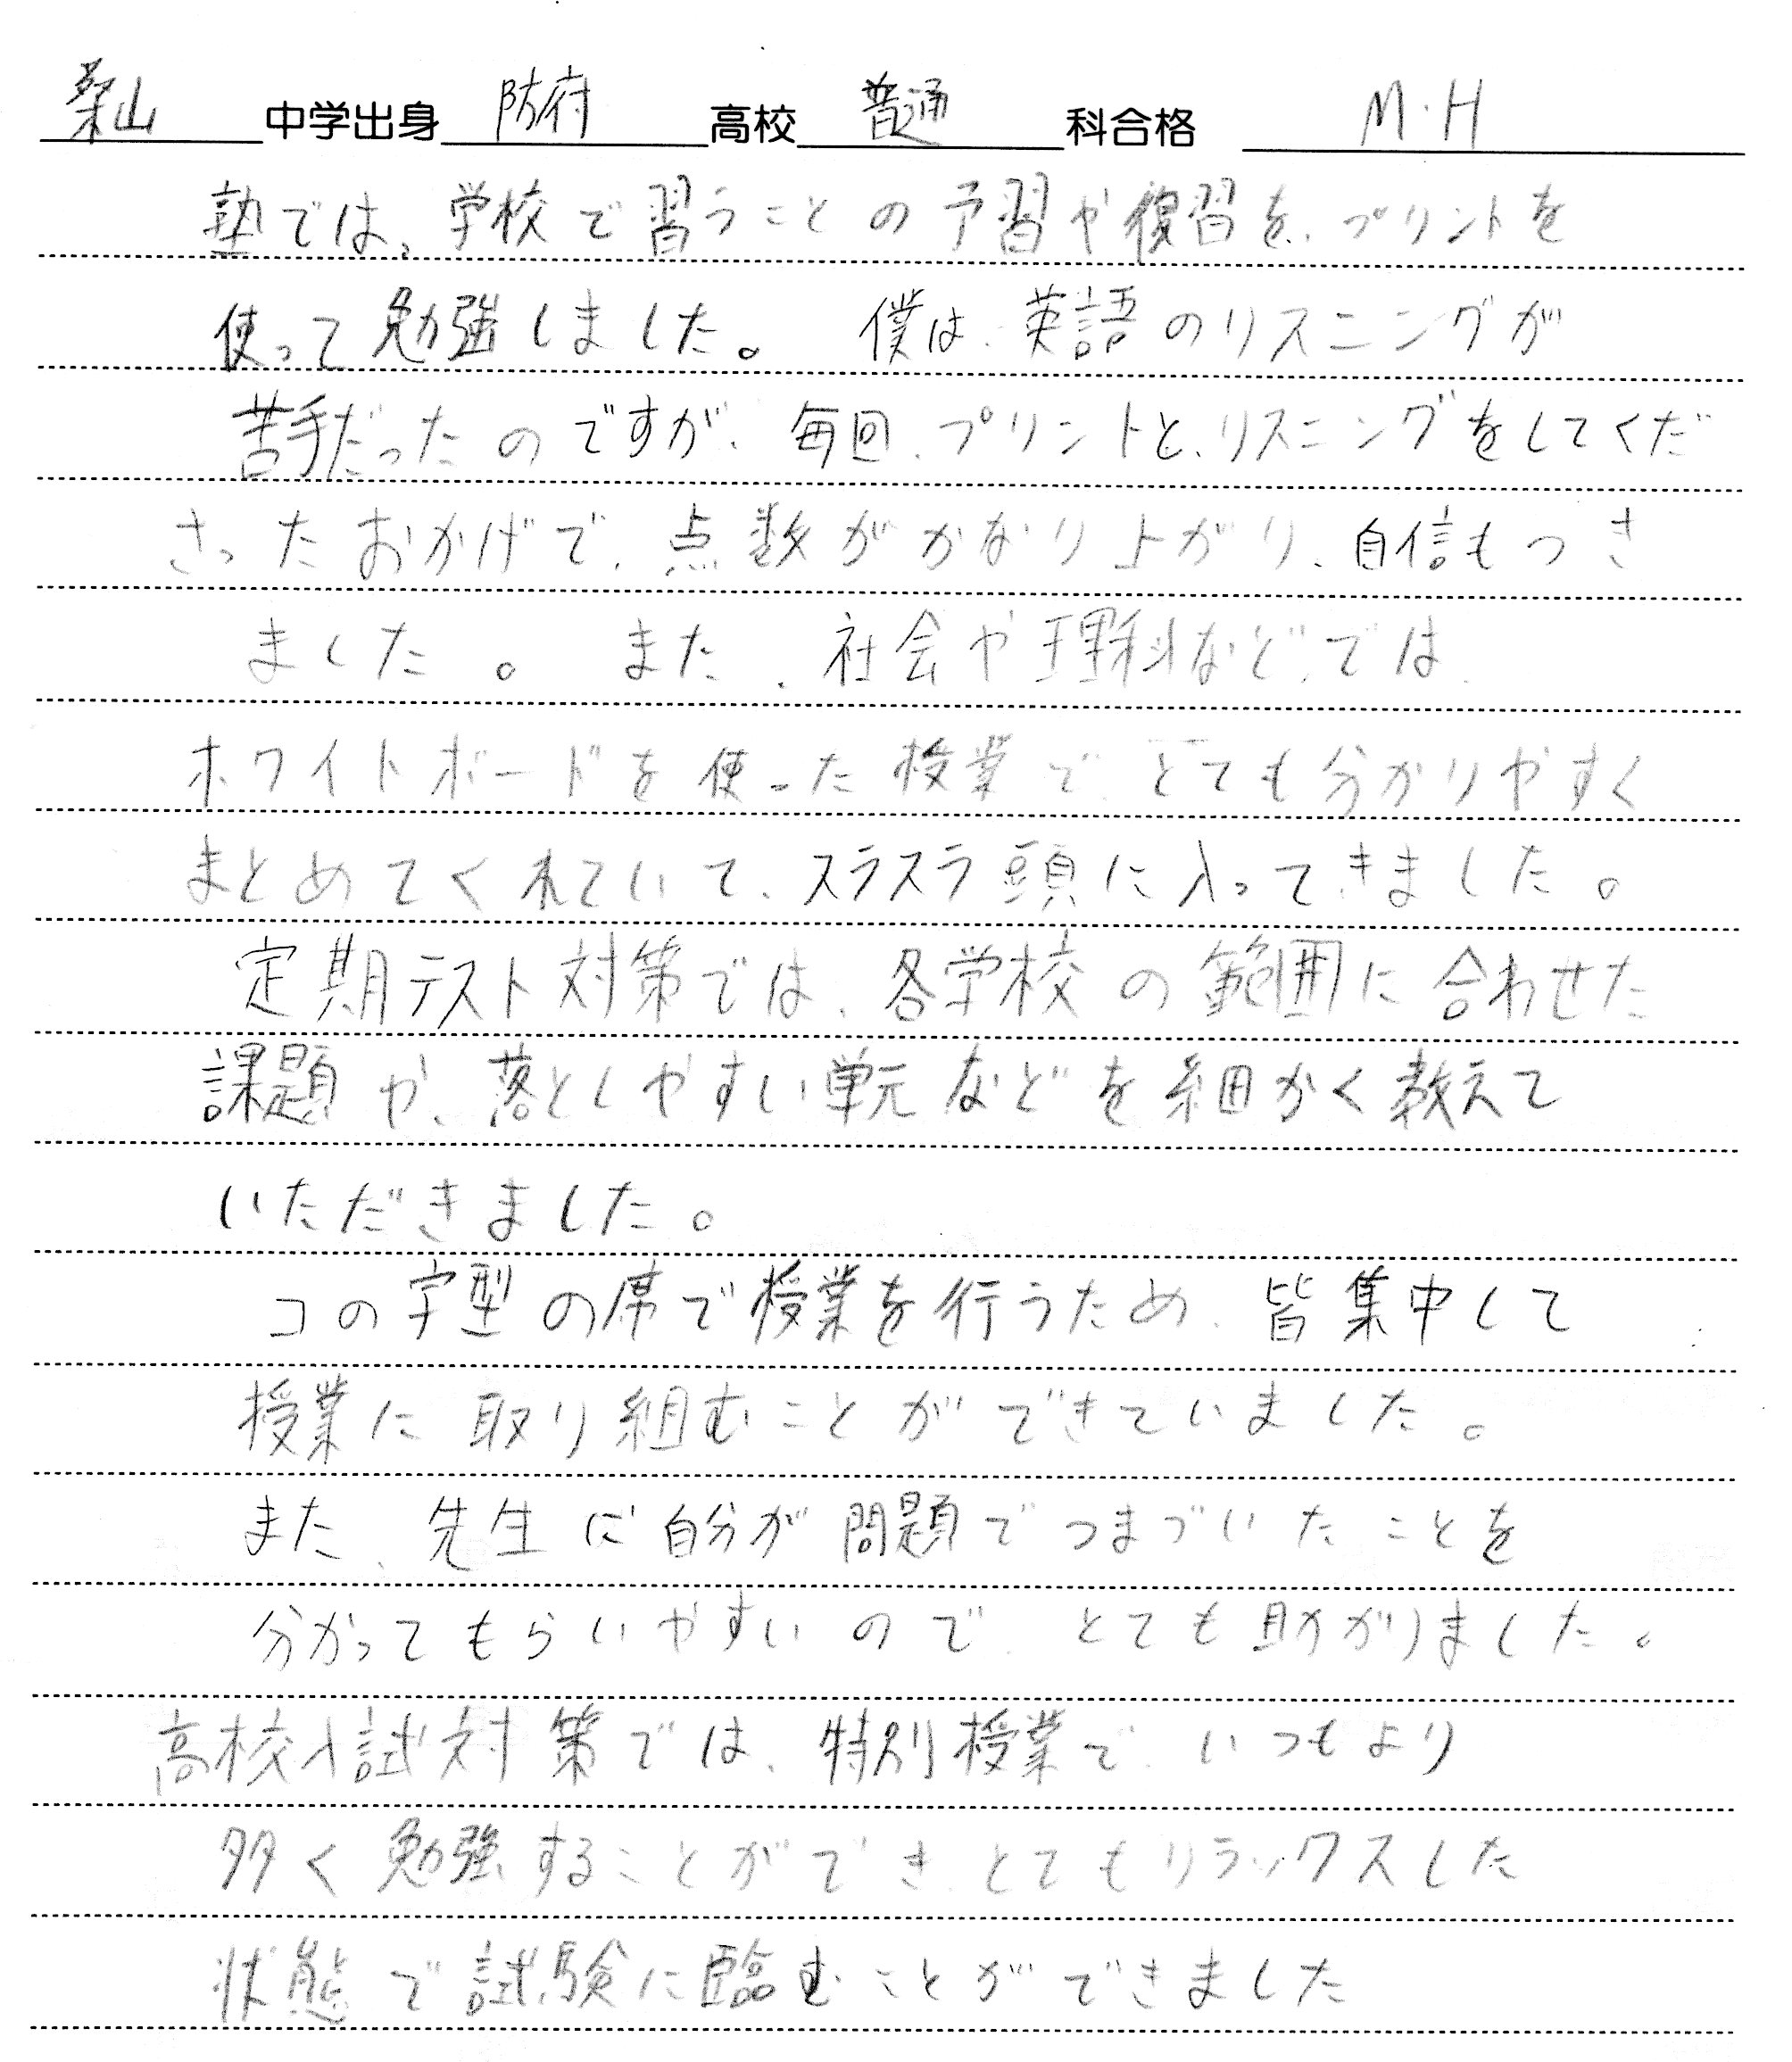 桑山中学出身 防府高校 普通科合格 M・H
塾では、学校で習うことの予習や復習を、プリントを
使って勉強しました。 僕は、英語のリスニングが
苦手だったのですが、毎回、プリントと、リスニングをしてくだ
さったおかげで、点数がかなり上がり、自信もつき
ました。 また、社会や理科など、では、
ホワイトボードを使った授業で、とても分かりやすく
まとめてくれていて、スラスラ頭に入ってきました。
定期テスト対策では、各学校の範囲に合わせた
課題や、落としやすい単元などを細かく教えて
いただきました。
コの字型の席で授業を行うため、皆集中して
授業に取り組むことができていました。
また、先生に自分が問題でつまづいたことを
分かってもらいやすいので、とても助かりました。
高校入試対策では、特別授業で、いつもより
多く勉強することができ、とてもリラックスした
状態で試験に臨むことができました